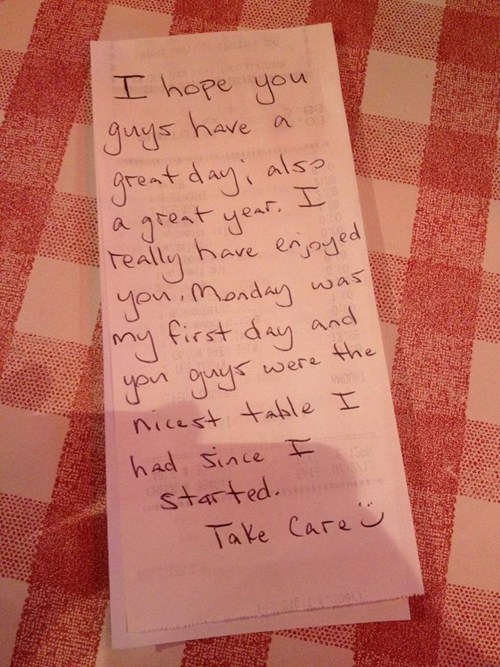 I hope you
guys have a
great day; also
a great year. I
really have enjoyed
you. Monday was
my first day and
you guys were the
nicest table I
had since I
started.
Take Care